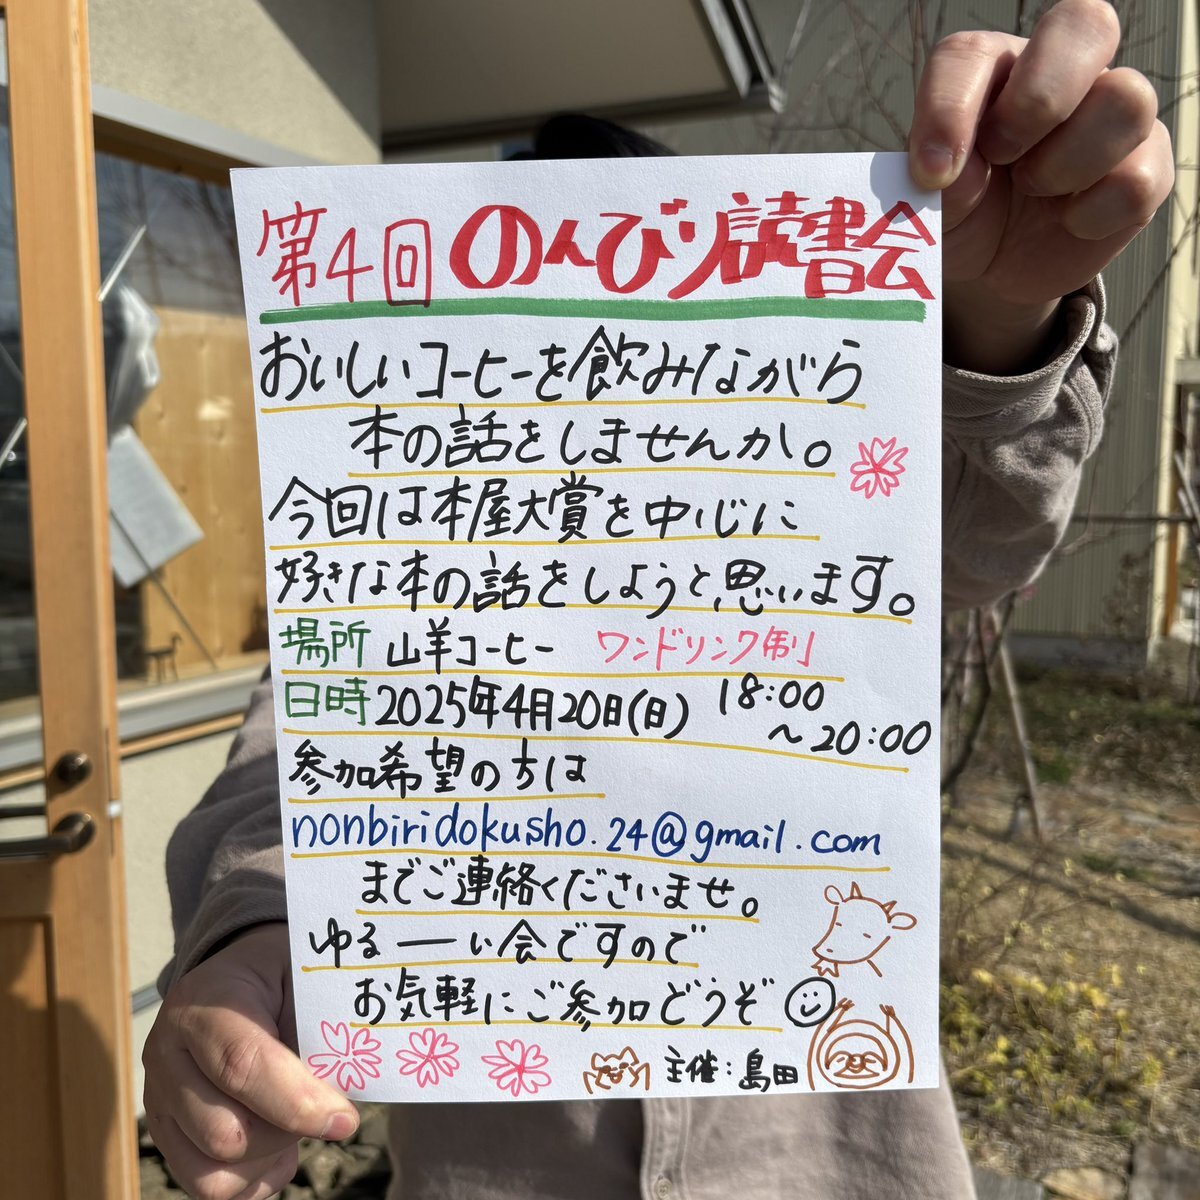 第4回 のんびり読書会
おいしいコーヒーを飲みながら
本の話をしませんか。
今回は本屋大賞を中心に
好きな本の話をしようと思います。
場所 山羊コーヒー ワンドリンク制
日時 2025年4月20日(日) 18:00
～20:00
参加希望のちは
nonbiridokusho.24@gmail.com
までご連絡くださいませ。
ゆるーい会ですので
お気軽にご参加どうぞ
主催:島田